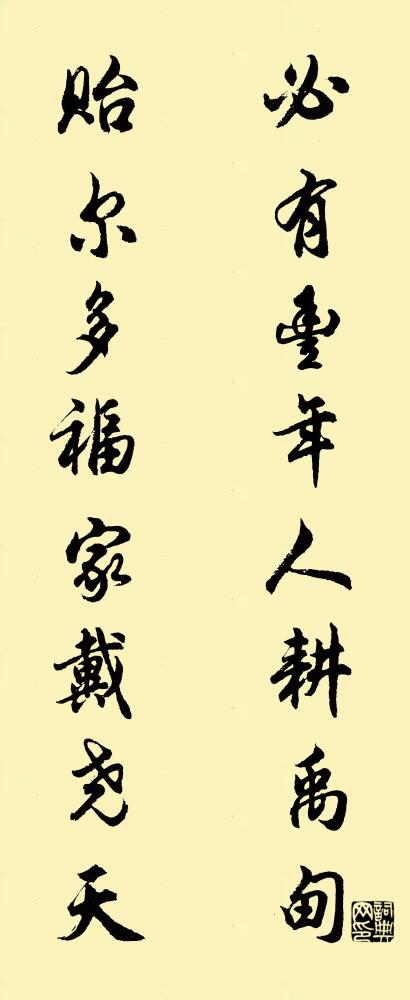 必有豐年人耕禹甸
貽尔多福家戴尧天
詞典网印